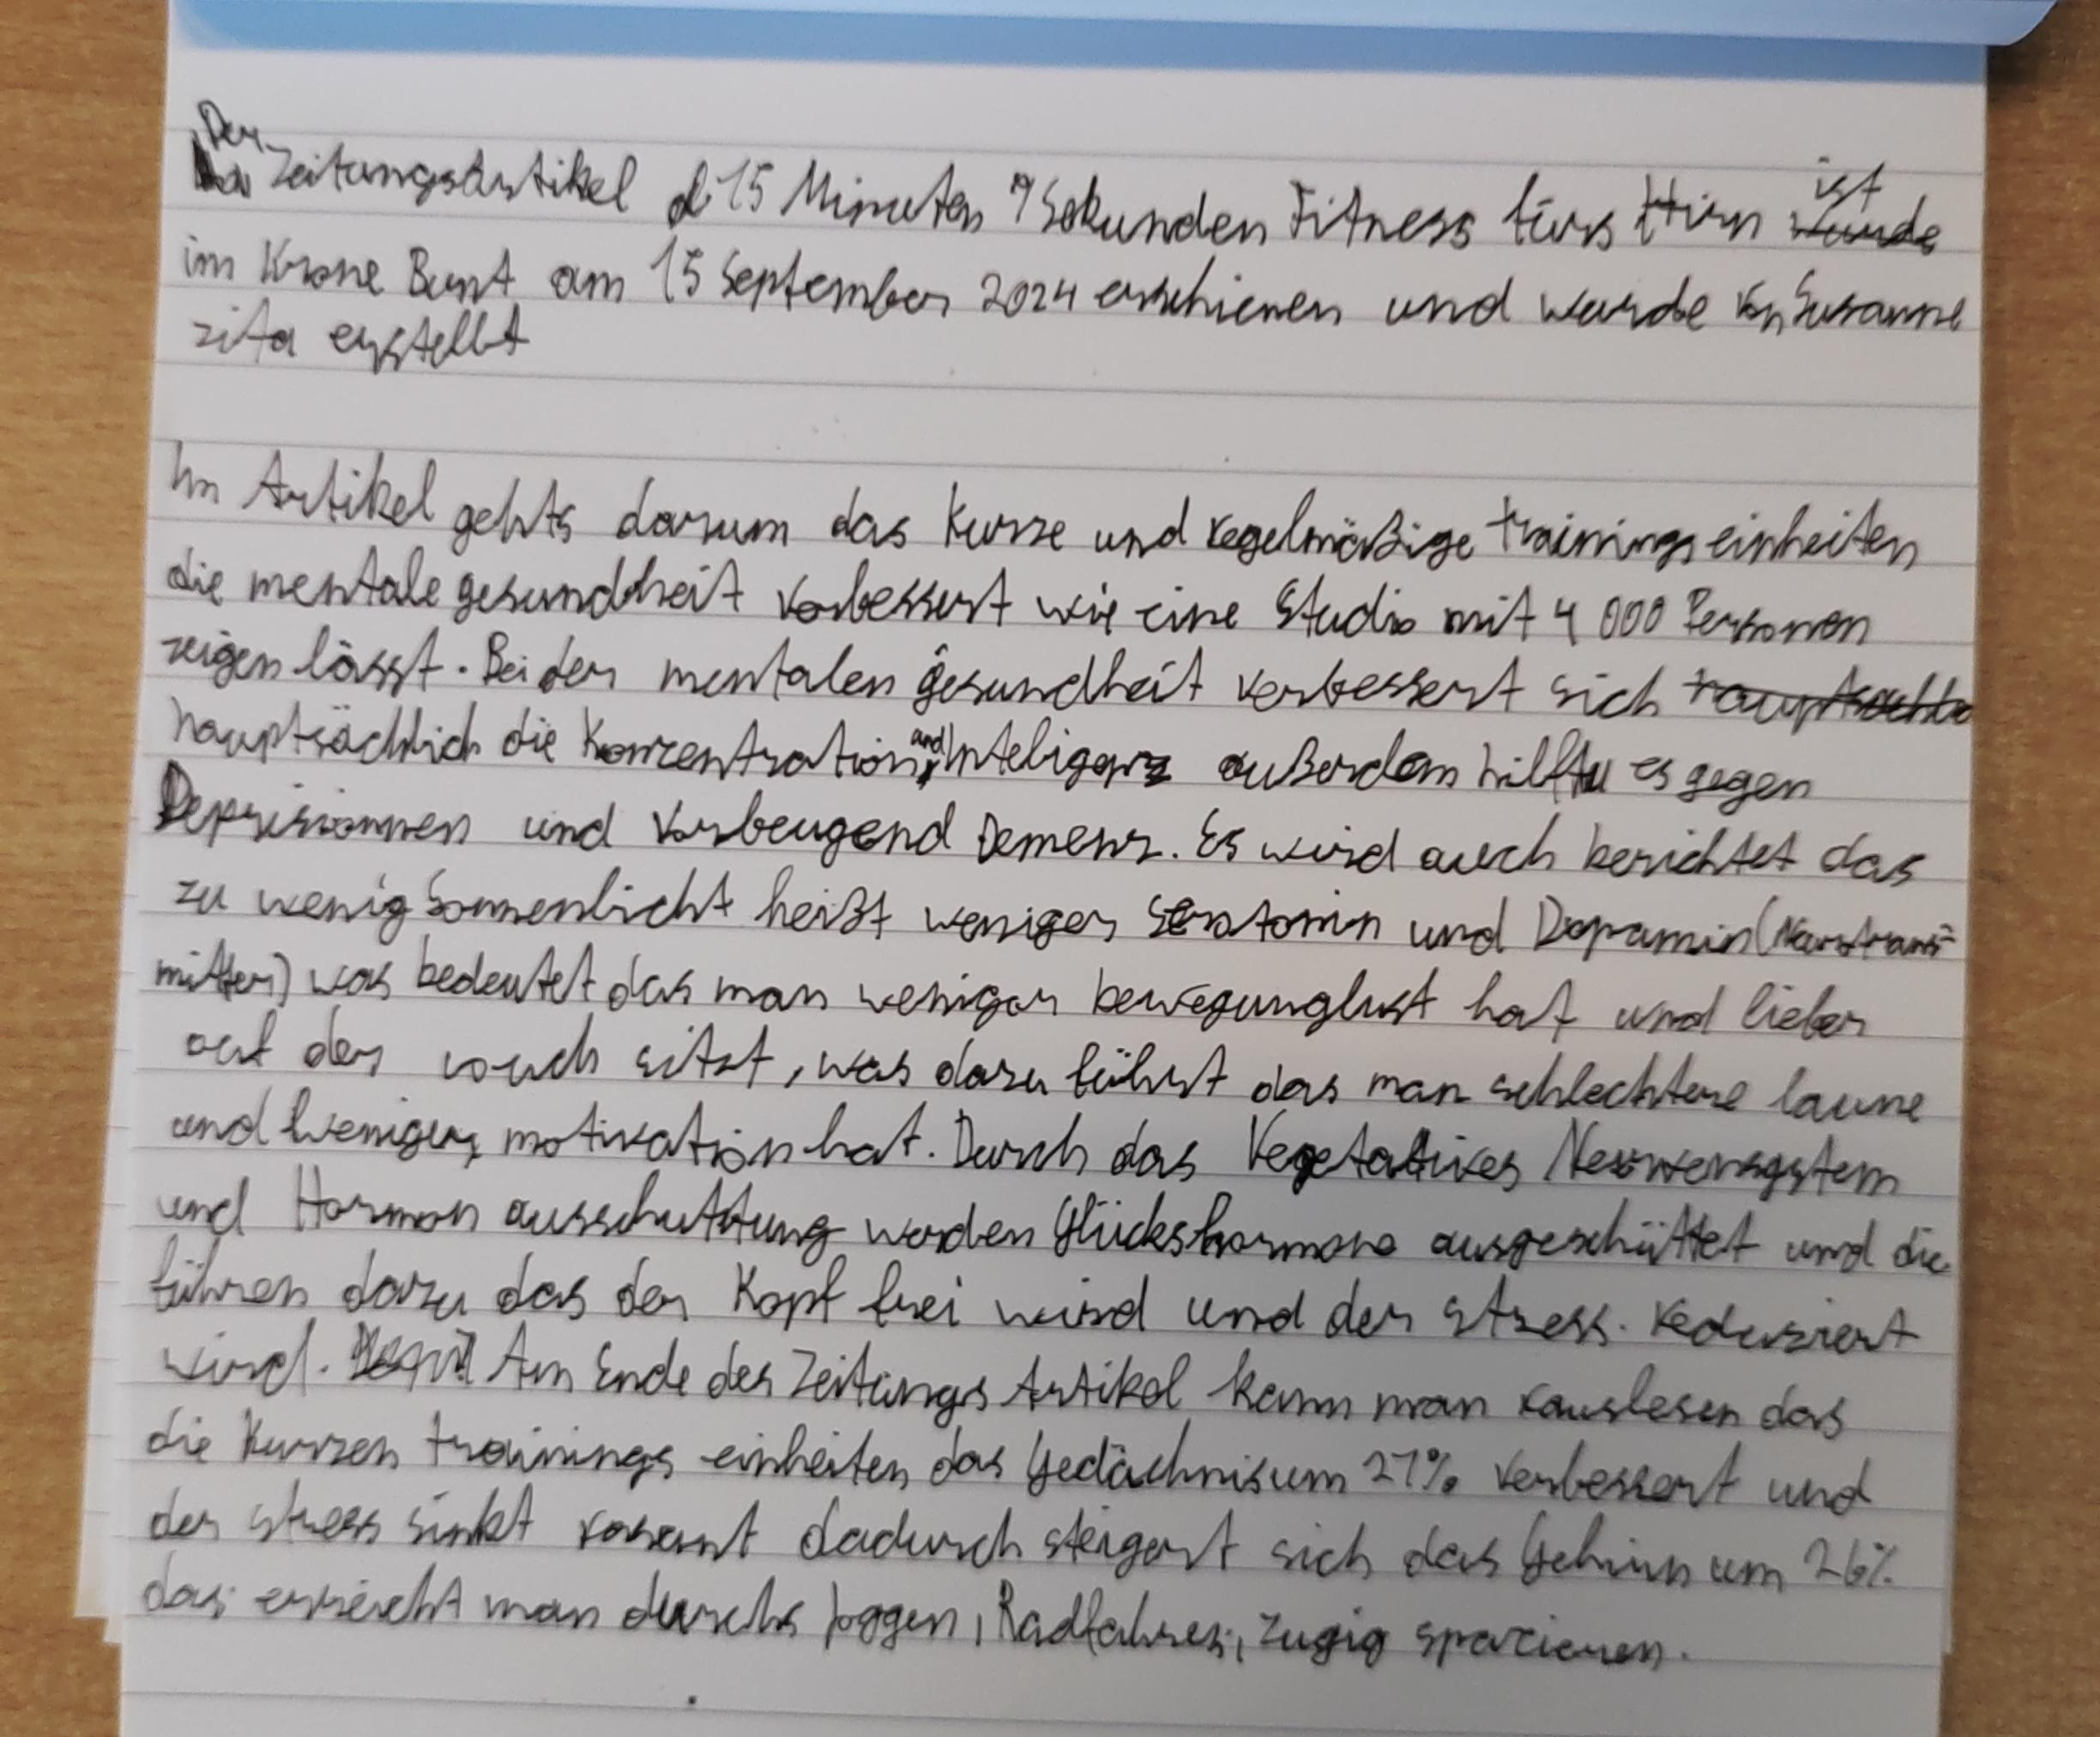 Der Zeitungsartikel 15 Minuten 9 Sekunden Fitness fürs Hirn ist
im Krone Bunt am 15 September 2024 erschienen und wurde von Susanne
zita erstellt
Im Artikel gehts darum das Kurze und regelmäßige trainingseinheiten
die mentale gesundheit verbessert wie eine Studie mit 4 000 Personen
zeigen lässt. Bei der mentalen gesundheit verbessert sich
hauptsächlich die Konzentration und Inteligenz außerdem hilft es gegen
Deprisionnen und vorbeugend Demenz. Es wird auch berichtet das
zu wenig Sonnenlicht heißt weniger Seratonin und Dopamin (Nervtrans-
mitter) was bedeutet das man weniger bewegunglust hat und lieber
auf der couch sitzt, was dazu führt das man schlechtere laune
und weniger motivation hat. Durch das Vegetatives Nervensystem
und Hormon ausschuttung werden Glückshormone ausgeschüttet und die
führen dazu das der Kopf frei wird und der stress. reduziert
wird. Am Ende des Zeitungs Artikel kann man rauslesen das
die Kurzen trainings einheiten das Gedächnis um 27% verbessert und
der stress sinkt rasant dadurch steigert sich das Gehirn um 26%
das erreicht man durchs joggen, Radfahren, zugig spazieren.